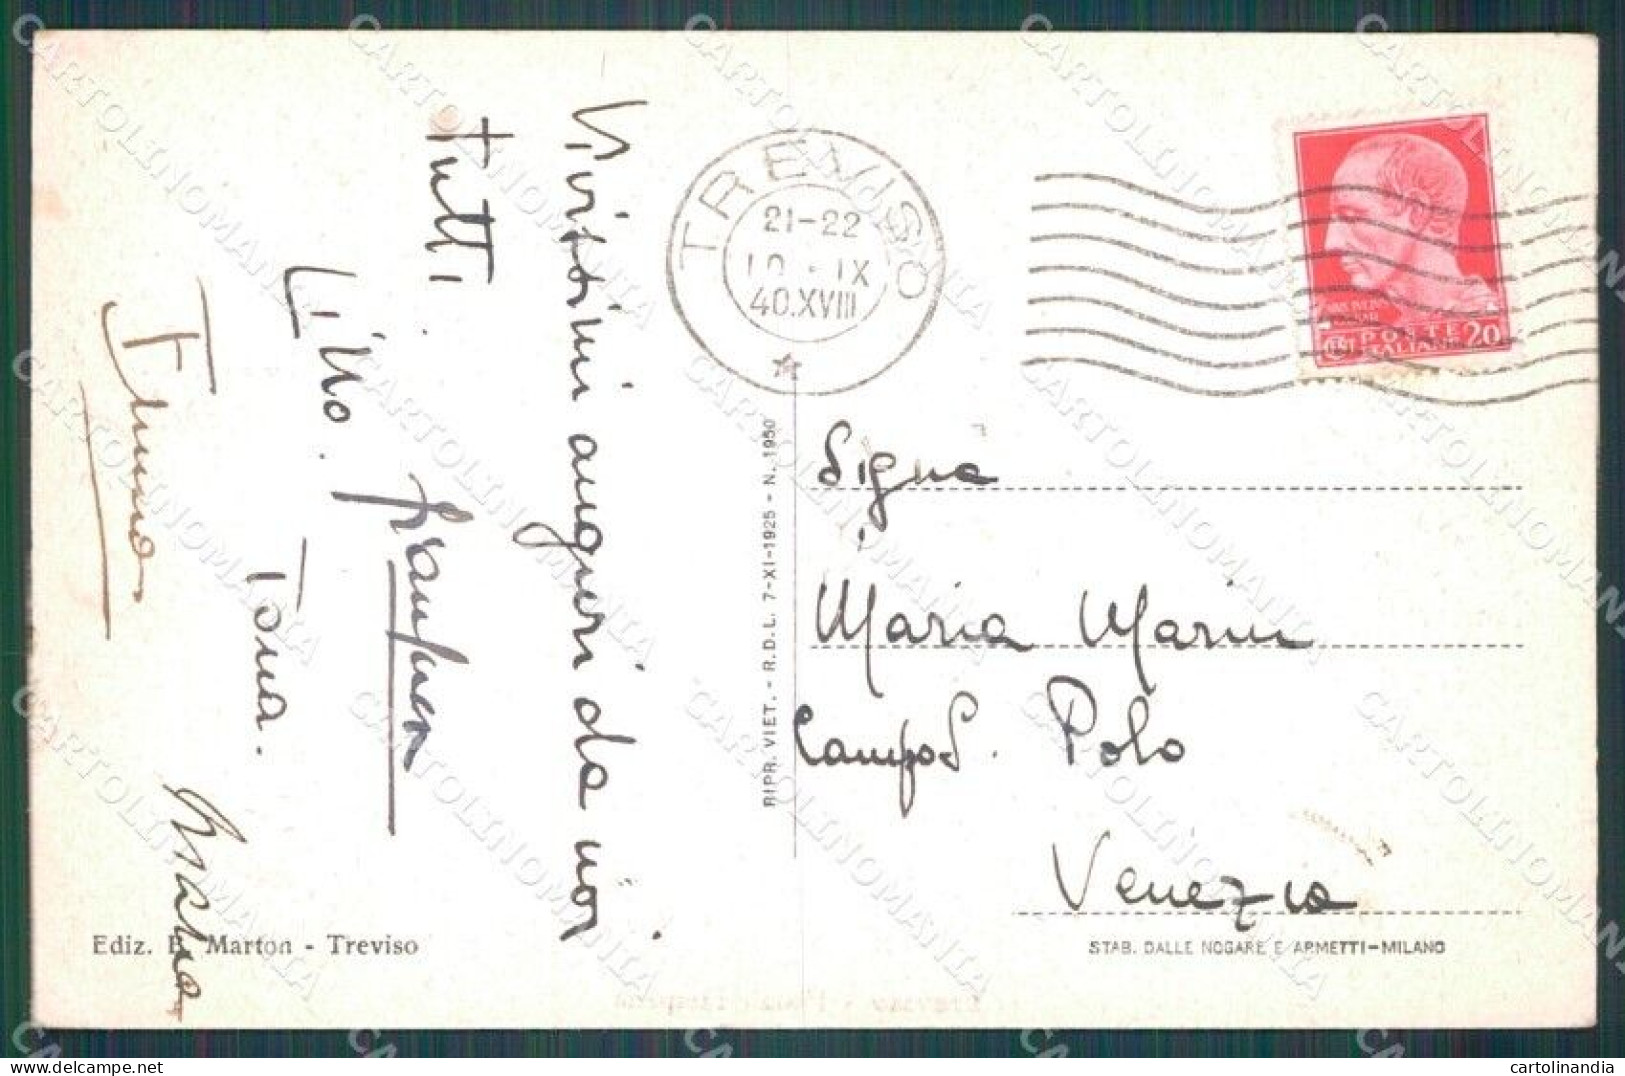 Vivissimi auguri da noi
tutti.
Lillo.
Tona.
TREVISO
21-22
10.IX
40.XVIII
POSTE
ITALIANE
20
Cent
RIPR. VIET. - R.D.L. 7-XI-1925 - N. 1950
Signa
Maria Marin
Campo S. Polo
Venezia
Ediz. B. Marton - Treviso
STAB. DALLE NOGARE E ARMETTI-MILANO
CARTOLINOMANIA
cartolinandia